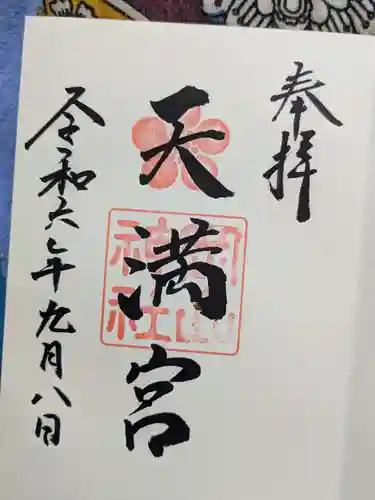 奉拝
天満宮
御山
神社
令和六年九月八日